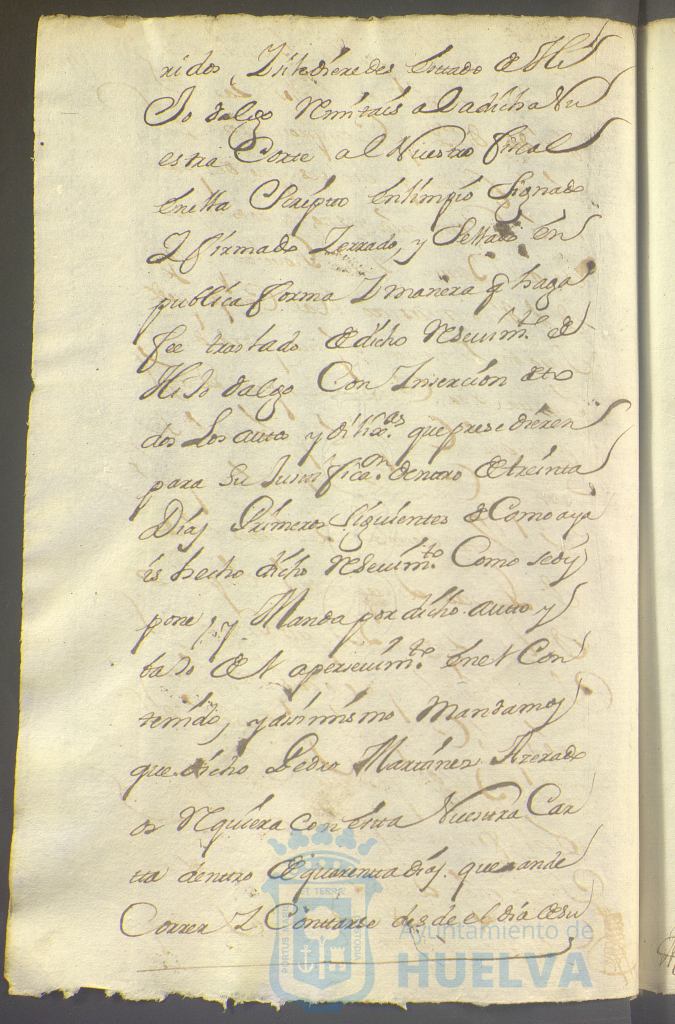 ridos, Y si le dieredes Estado de Hi
Jo dalgo Remitais a la dicha Nu
estra Corte al Nuestro fiscal
en ella Scripto en limpio Signado
Y firmado Zerrado, y Sellado en
publica forma Y manera q haga
fee traslado de dicho Resevim.to de
Hijo dalgo Con Inserción de to
dos Los autos y dilix.as que presedieren
para Su Justificaon. dentro de treinta
Días Primeros Siguientes de Como aya
is hecho dicho Resevim.to Como se dis
pone, y Manda por dicho auto y
bajo del apersevim.to en el Con
tenido, y asimismo Mandamos
que dicho Pedro Martinez
os Requiera con esta Nuestra Car
ta dentro de quarenta días. que ande
Correr Y Contarse desde el día de su
Ayuntamiento de
HUELVA